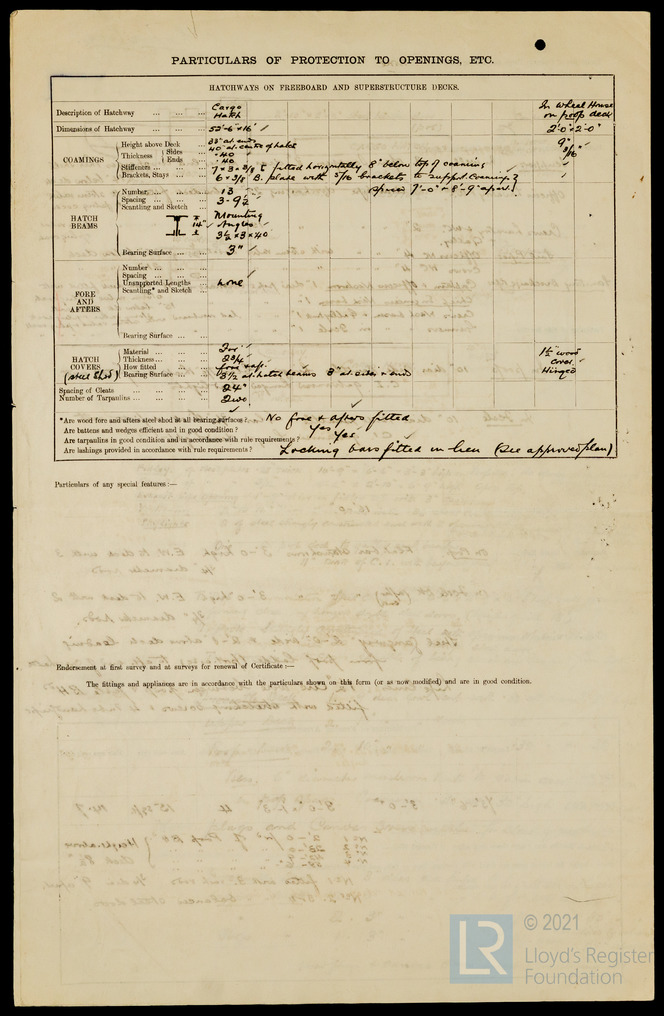 PARTICULARS OF PROTECTION TO OPENINGS, ETC.
HATCHWAYS ON FREEBOARD AND SUPERSTRUCTURE DECKS.
Description of Hatchway ... ... ... Cargo Hatch In Wheel House on poop deck
Dimensions of Hatchway ... ... 52'-6" × 16' 2'-0" × 2'-0"
COAMINGS
Height above Deck 38" at ends 40" at centre of hatch 9"
Thickness Sides .40 3/16"
Ends .40
Stiffeners ... 7 × 3 × 3/8 fitted horizontally 8" below top of coaming
Brackets, Stays ... ... 6 × 3/4 B. plate with 5/16 brackets to support coaming
spaced 7'-0" & 8'-9" apart
HATCH BEAMS
Number... ... ... 13
Spacing ... ... ... 3-9½
Scantling and Sketch ... Mounting
14" Angles
3½ × 3 × .40
Bearing Surface ... ... 3"
FORE AND AFTERS
Number ... ... ...
Spacing ... ... ...
Unsupported Lengths none
Scantling* and Sketch ...
Bearing Surface ... ...
HATCH COVERS (steel shod)
Material ... ... ... Fir 1½" wood
Thickness... ... ... 2¾ cover
How fitted ... ... fore & aft Hinged
Bearing Surface ... ... 3½ at hatch beams 3" at sides & ends
Spacing of Cleats ... ... ... 24"
Number of Tarpaulins ... ... ... Two
*Are wood fore and afters steel shod at all bearing surfaces? No fore & afters fitted
Are battens and wedges efficient and in good condition? Yes
Are tarpaulins in good condition and in accordance with rule requirements? Yes
Are lashings provided in accordance with rule requirements? Locking bars fitted in lieu (See approved plan)
Particulars of any special features:—
Endorsement at first survey and at surveys for renewal of Certificate:—
The fittings and appliances are in accordance with the particulars shown on this form (or as now modified) and are in good condition.
LR
© 2021
Lloyd's Register
Foundation